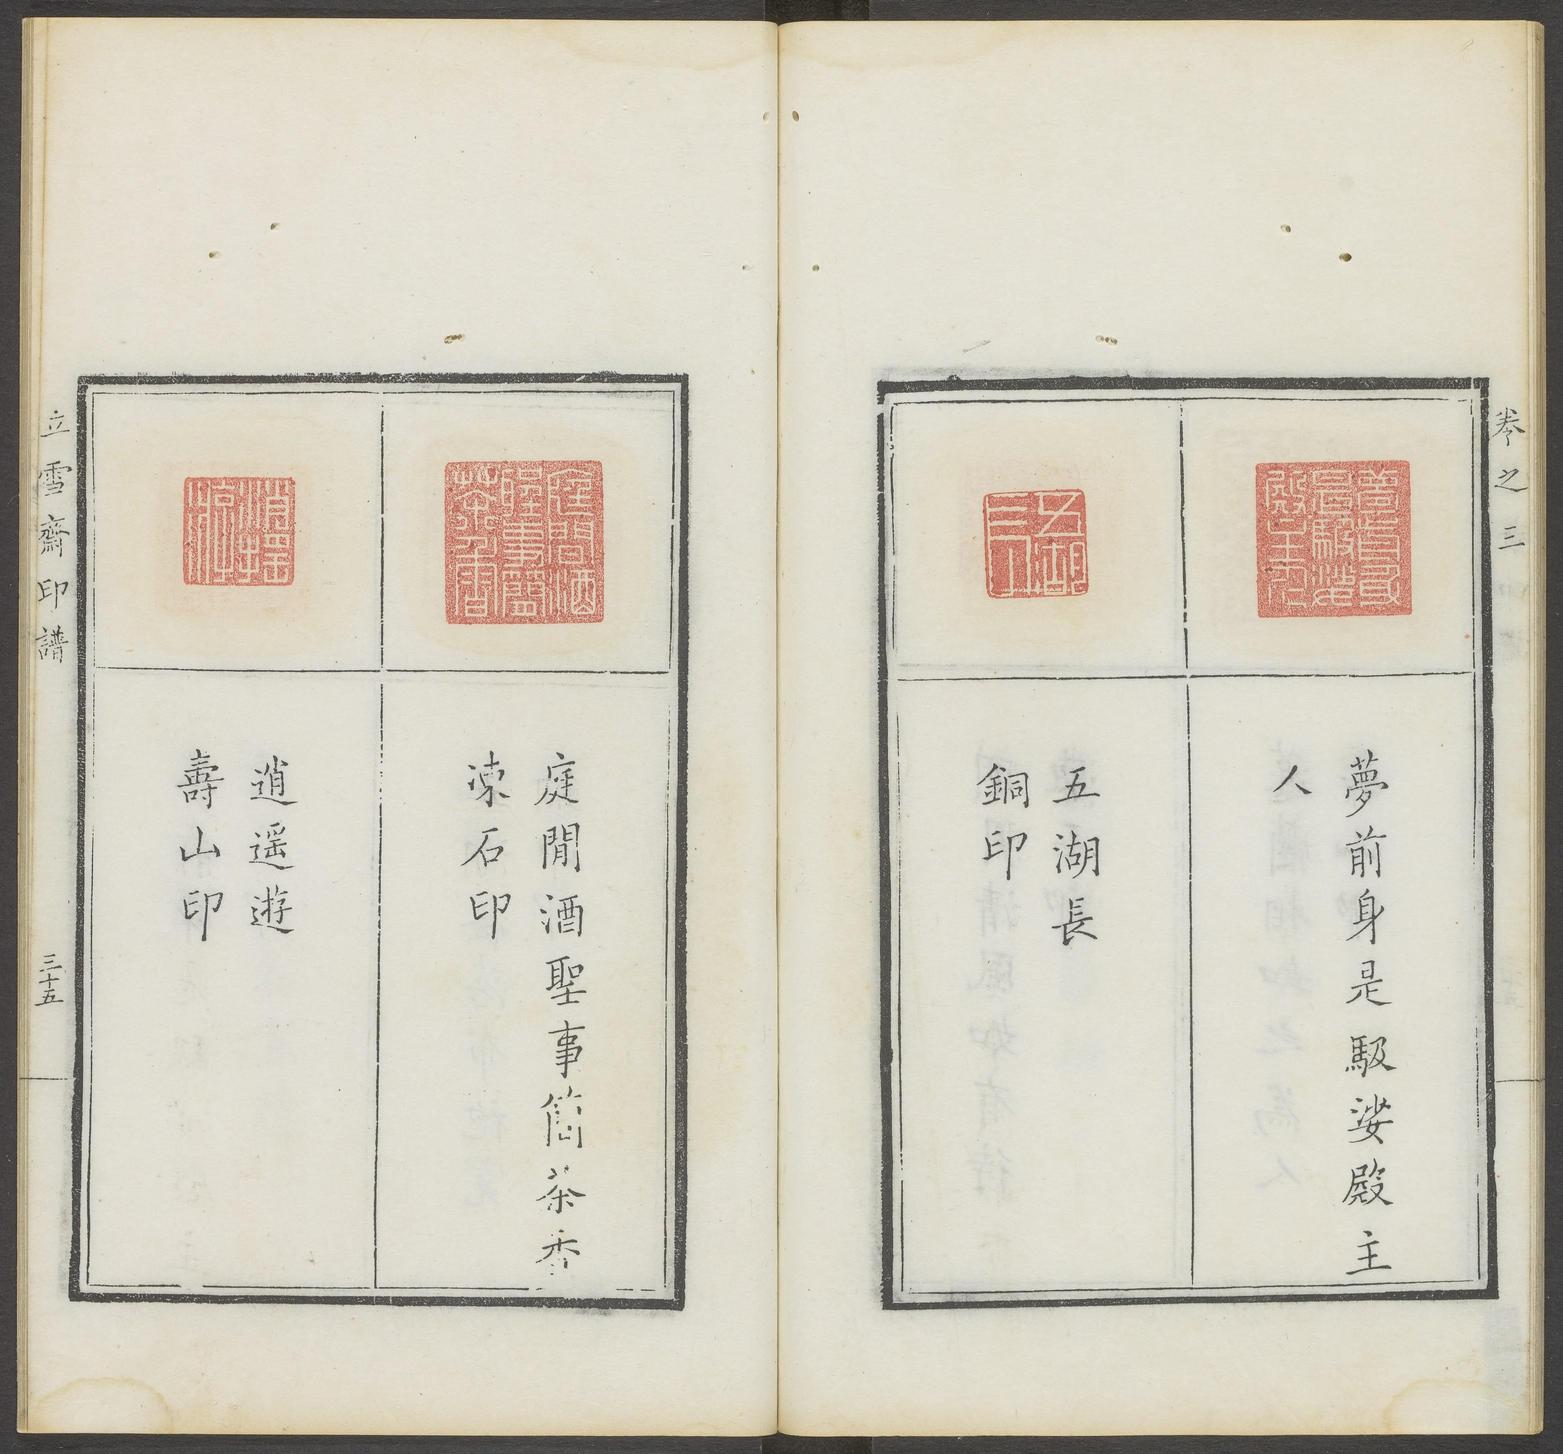 卷之三
夢前身是馺娑殿主
人
五湖長
銅印
庭閒酒聖事簡茶香
凍石印
逍遥遊
壽山印
立雪齋印譜
三十五